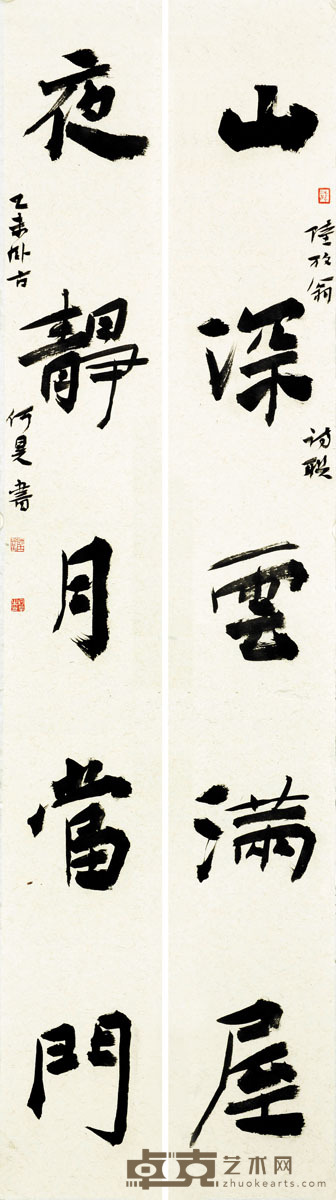 山深雲滿屋
陸放翁
詩聯
夜靜月當門
乙未
何昊書
卓克艺术网
zhuokearts.com